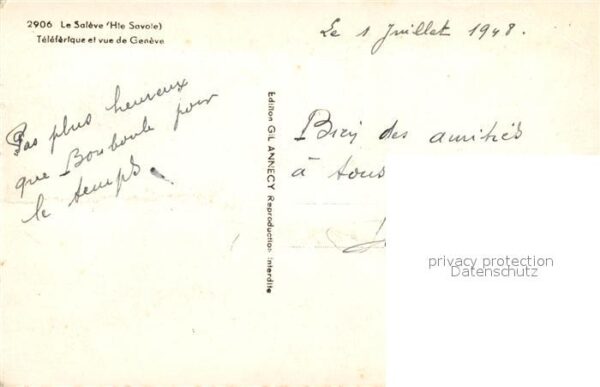 2906 Le Salève (Hte Savoie)
Téléférique et vue de Genève
Le 1 Juillet 1948.
Pas plus heureux
que Bourboule pour
le temps.
Edition GIL ANNECY Reproduction Interdite
Bien des amitiés
à tous
privacy protection
Datenschutz